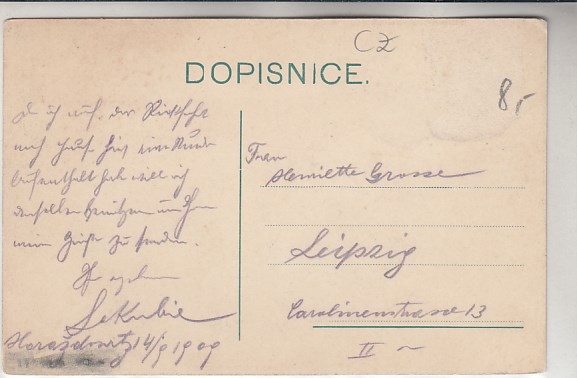 CZ
DOPISNICE.
8,-
Da ich auf der Rückfahrt
nach Haus hier eine Stunde
Aufenthalt hab will ich
denselben benützen um Ihnen
einen Gruß zu senden.
Ihr ergebener
Horažďowitz 14/9 1909
Frau
Henriette Grosse
Leipzig
Carolinenstrasse 13
II